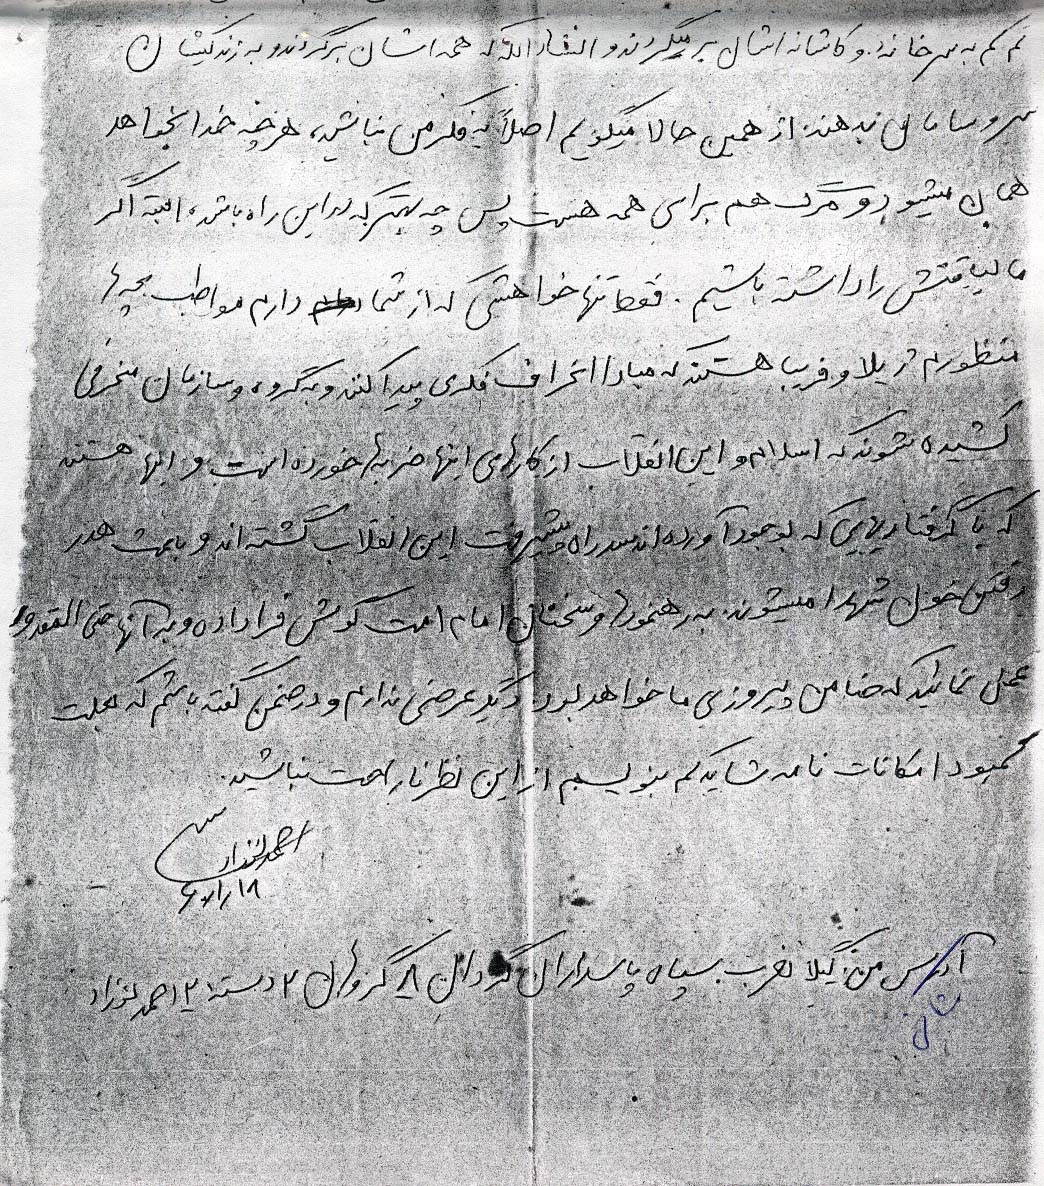 کم کم به سر خانه و کاشانه اشان بر میگردند و انشاءالله که همه اشان برگردند و به زندگیشان
سر و سامانی بدهند. از همین حالا میگویم اصلاً به فکر من نباشید، هر چه خدا بخواهد
همان میشود و مرگ هم برای همه هست پس چه بهتر که در این راه باشد، البته اگر
ما لیاقتش را داشته باشیم. فقط تنها خواهشی که از شما دارم مواظب بچه ها
منظورم ژیلا و فریبا هستند که مبادا انحراف فکری پیدا کنند و به گروه و سازمان منحرفی
کشیده شوند که اسلام و این انقلاب از کارهای اینها ضربه ها خورده است و اینها هستند
که با گرفتاریهایی که بوجود آورده اند سد راه پیشرفت این انقلاب گشته اند و باعث هدر
رفتن خون شهدا میشوند. به رهنمودها و سخنان امام امت گوش فرا داده و به آنها حتی المقدور
عمل نمائید که ضامن پیروزی ما خواهد بود. دیگر عرضی ندارم و در ضمن گفته باشم که بعلت
کمبود امکانات نامه شاید کم بنویسم از این نظر ناراحت نباشید.
احمد
آدرس من: گیلانغرب سپاه پاسداران گردان ۸ گروهان ۲ دسته ۲ احمد